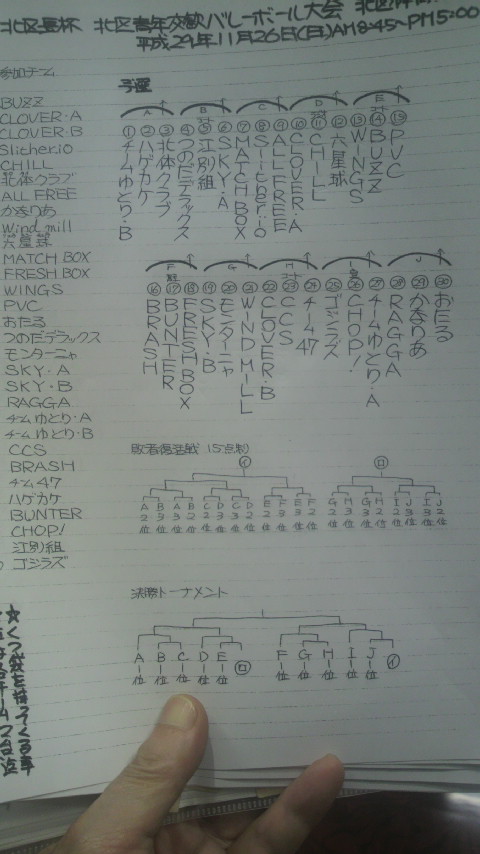 北区長杯 北区青年交歓バレーボール大会 北区体育
平成29年11月26日(日)AM8:45~PM5:00
参加チーム
BUZZ
CLOVER・A
CLOVER・B
Slitherio
CHILL
北体クラブ
ALL FREE
かまりあ
Wind mill
六星球
MATCH BOX
FRESH BOX
WINGS
PVC
おたる
つのだデラックス
モンターニャ
SKY・A
SKY・B
RAGGA
チームゆとり・A
チームゆとり・B
CCS
BRASH
チーム47
ハゲカケ
BUNTER
CHOP!
江別組
ゴジラズ
予選
A B C D E
①チームゆとり・B
②ハゲカケ
③北体クラブ
④つのだデラックス
⑤江別組
⑥SKY・A
⑦MATCH BOX
⑧Slitherio
⑨ALL FREE
⑩CLOVER・A
⑪CHILL
⑫六星球
⑬WINGS
⑭BUZZ
⑮PVC
F G H I J
⑯BRASH
⑰BUNTER
⑱FRESH BOX
⑲SKY・B
⑳モンターニャ
㉑WIND MILL
㉒CLOVER・B
㉓CCS
㉔チーム47
㉕ゴジラズ
㉖CHOP!
㉗チームゆとり・A
㉘RAGGA
㉙かまりあ
㉚おたる
敗者復活戦 15点制
イ ロ
A2位 B3位 A3位 B2位 C2位 D3位 C3位 D2位 E2位 F3位 E3位 F2位 G2位 H3位 G3位 H2位 I2位 J3位 I3位 J2位
決勝トーナメント
A1位 B1位 C1位 D1位 E1位 ロ F1位 G1位 H1位 I1位 J1位 イ
★くつ袋を持ってくる事